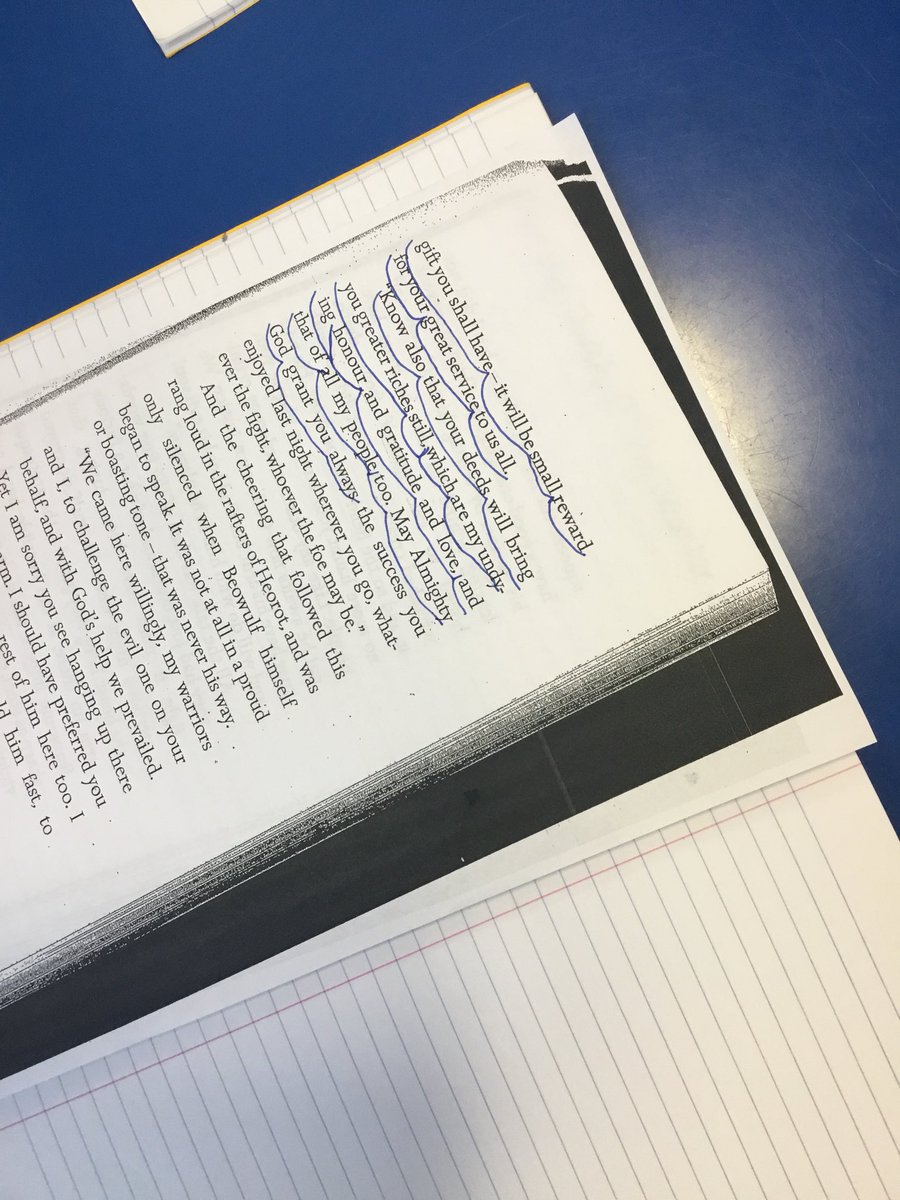 gift you shall have – it will be small reward
for your great service to us all.
"Know also that your deeds will bring
you greater riches still, which are my undy-
ing honour and gratitude and love, and
that of all my people too. May Almighty
God grant you always the success you
enjoyed last night wherever you go, what-
ever the fight, whoever the foe may be."
And the cheering that followed this
rang loud in the rafters of Heorot, and was
only silenced when Beowulf himself
began to speak. It was not at all in a proud
or boasting tone – that was never his way.
"We came here willingly, my warriors
and I, to challenge the evil one on your
behalf, and with God's help we prevailed.
Yet I am sorry you see hanging up there
I should have preferred you
rest of him here too. I
him fast, to